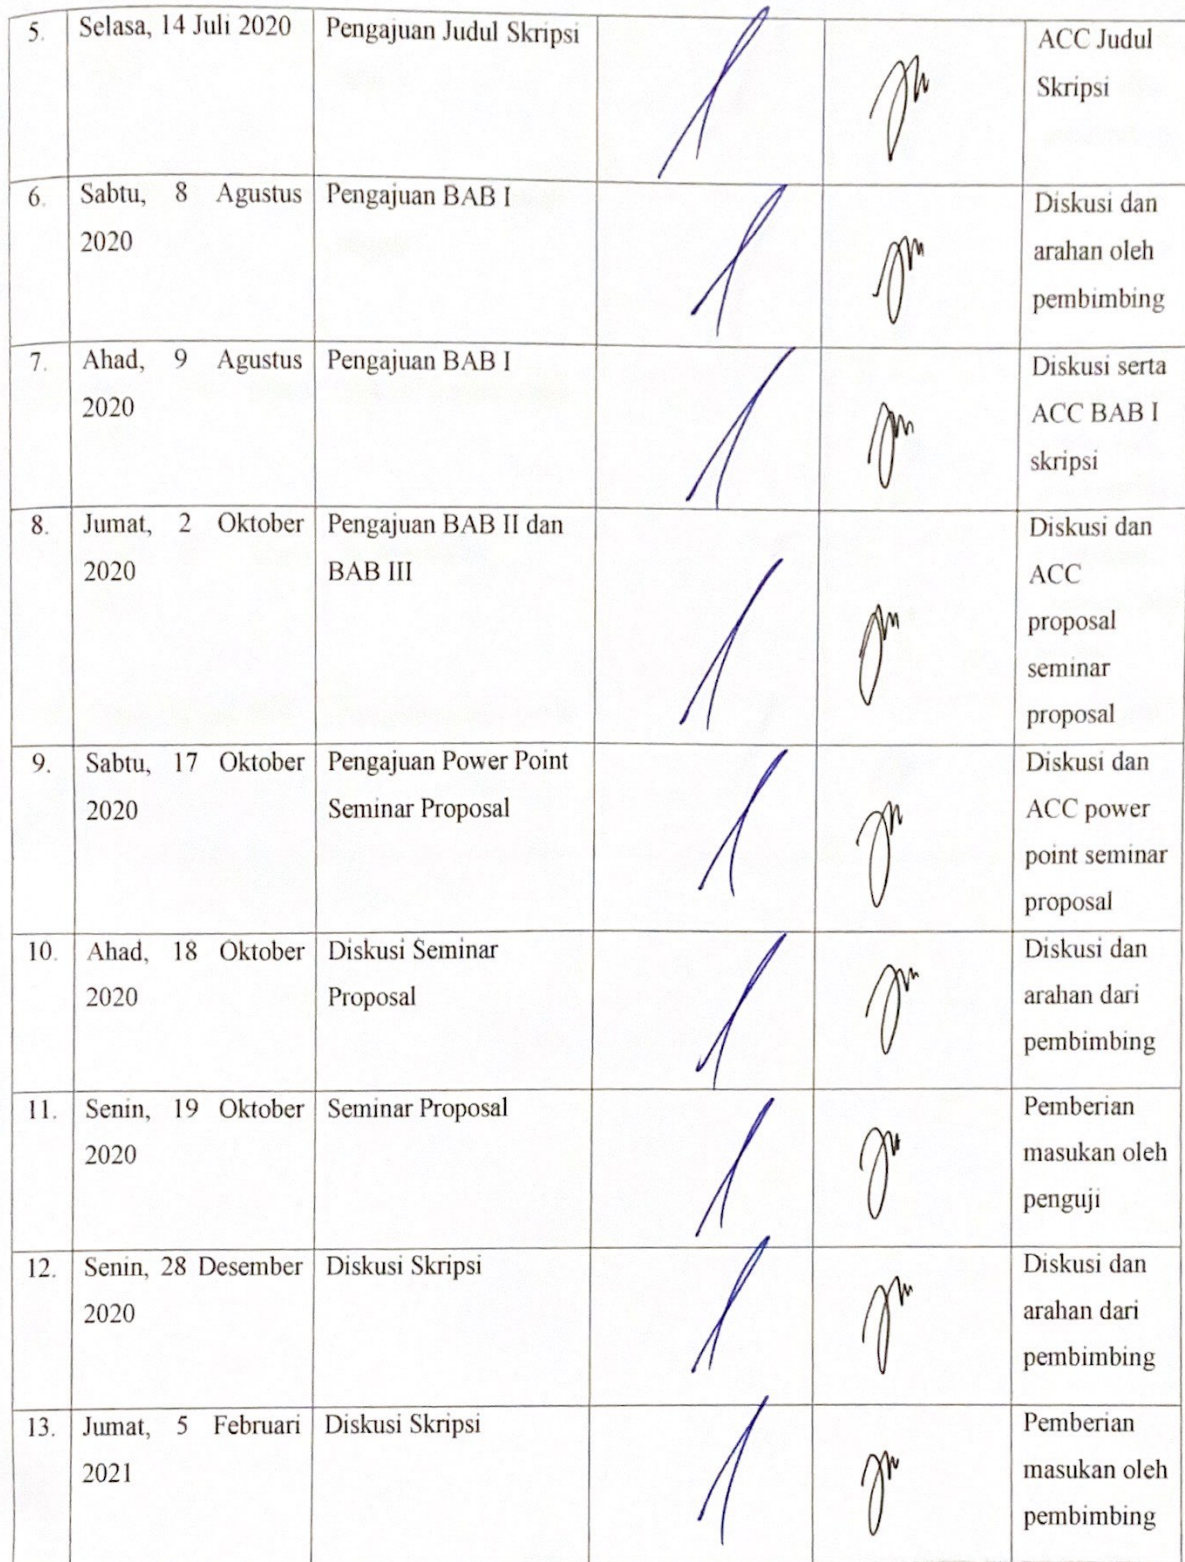 5.
Selasa, 14 Juli 2020
Pengajuan Judul Skripsi
ACC Judul
Skripsi
6.
Sabtu, 8 Agustus
2020
Pengajuan BAB I
Diskusi dan
arahan oleh
pembimbing
7.
Ahad, 9 Agustus
2020
Pengajuan BAB I
Diskusi serta
ACC BAB I
skripsi
8.
Jumat, 2 Oktober
2020
Pengajuan BAB II dan
BAB III
Diskusi dan
ACC
proposal
seminar
proposal
9.
Sabtu, 17 Oktober
2020
Pengajuan Power Point
Seminar Proposal
Diskusi dan
ACC power
point seminar
proposal
10.
Ahad, 18 Oktober
2020
Diskusi Seminar
Proposal
Diskusi dan
arahan dari
pembimbing
11.
Senin, 19 Oktober
2020
Seminar Proposal
Pemberian
masukan oleh
penguji
12.
Senin, 28 Desember
2020
Diskusi Skripsi
Diskusi dan
arahan dari
pembimbing
13.
Jumat, 5 Februari
2021
Diskusi Skripsi
Pemberian
masukan oleh
pembimbing